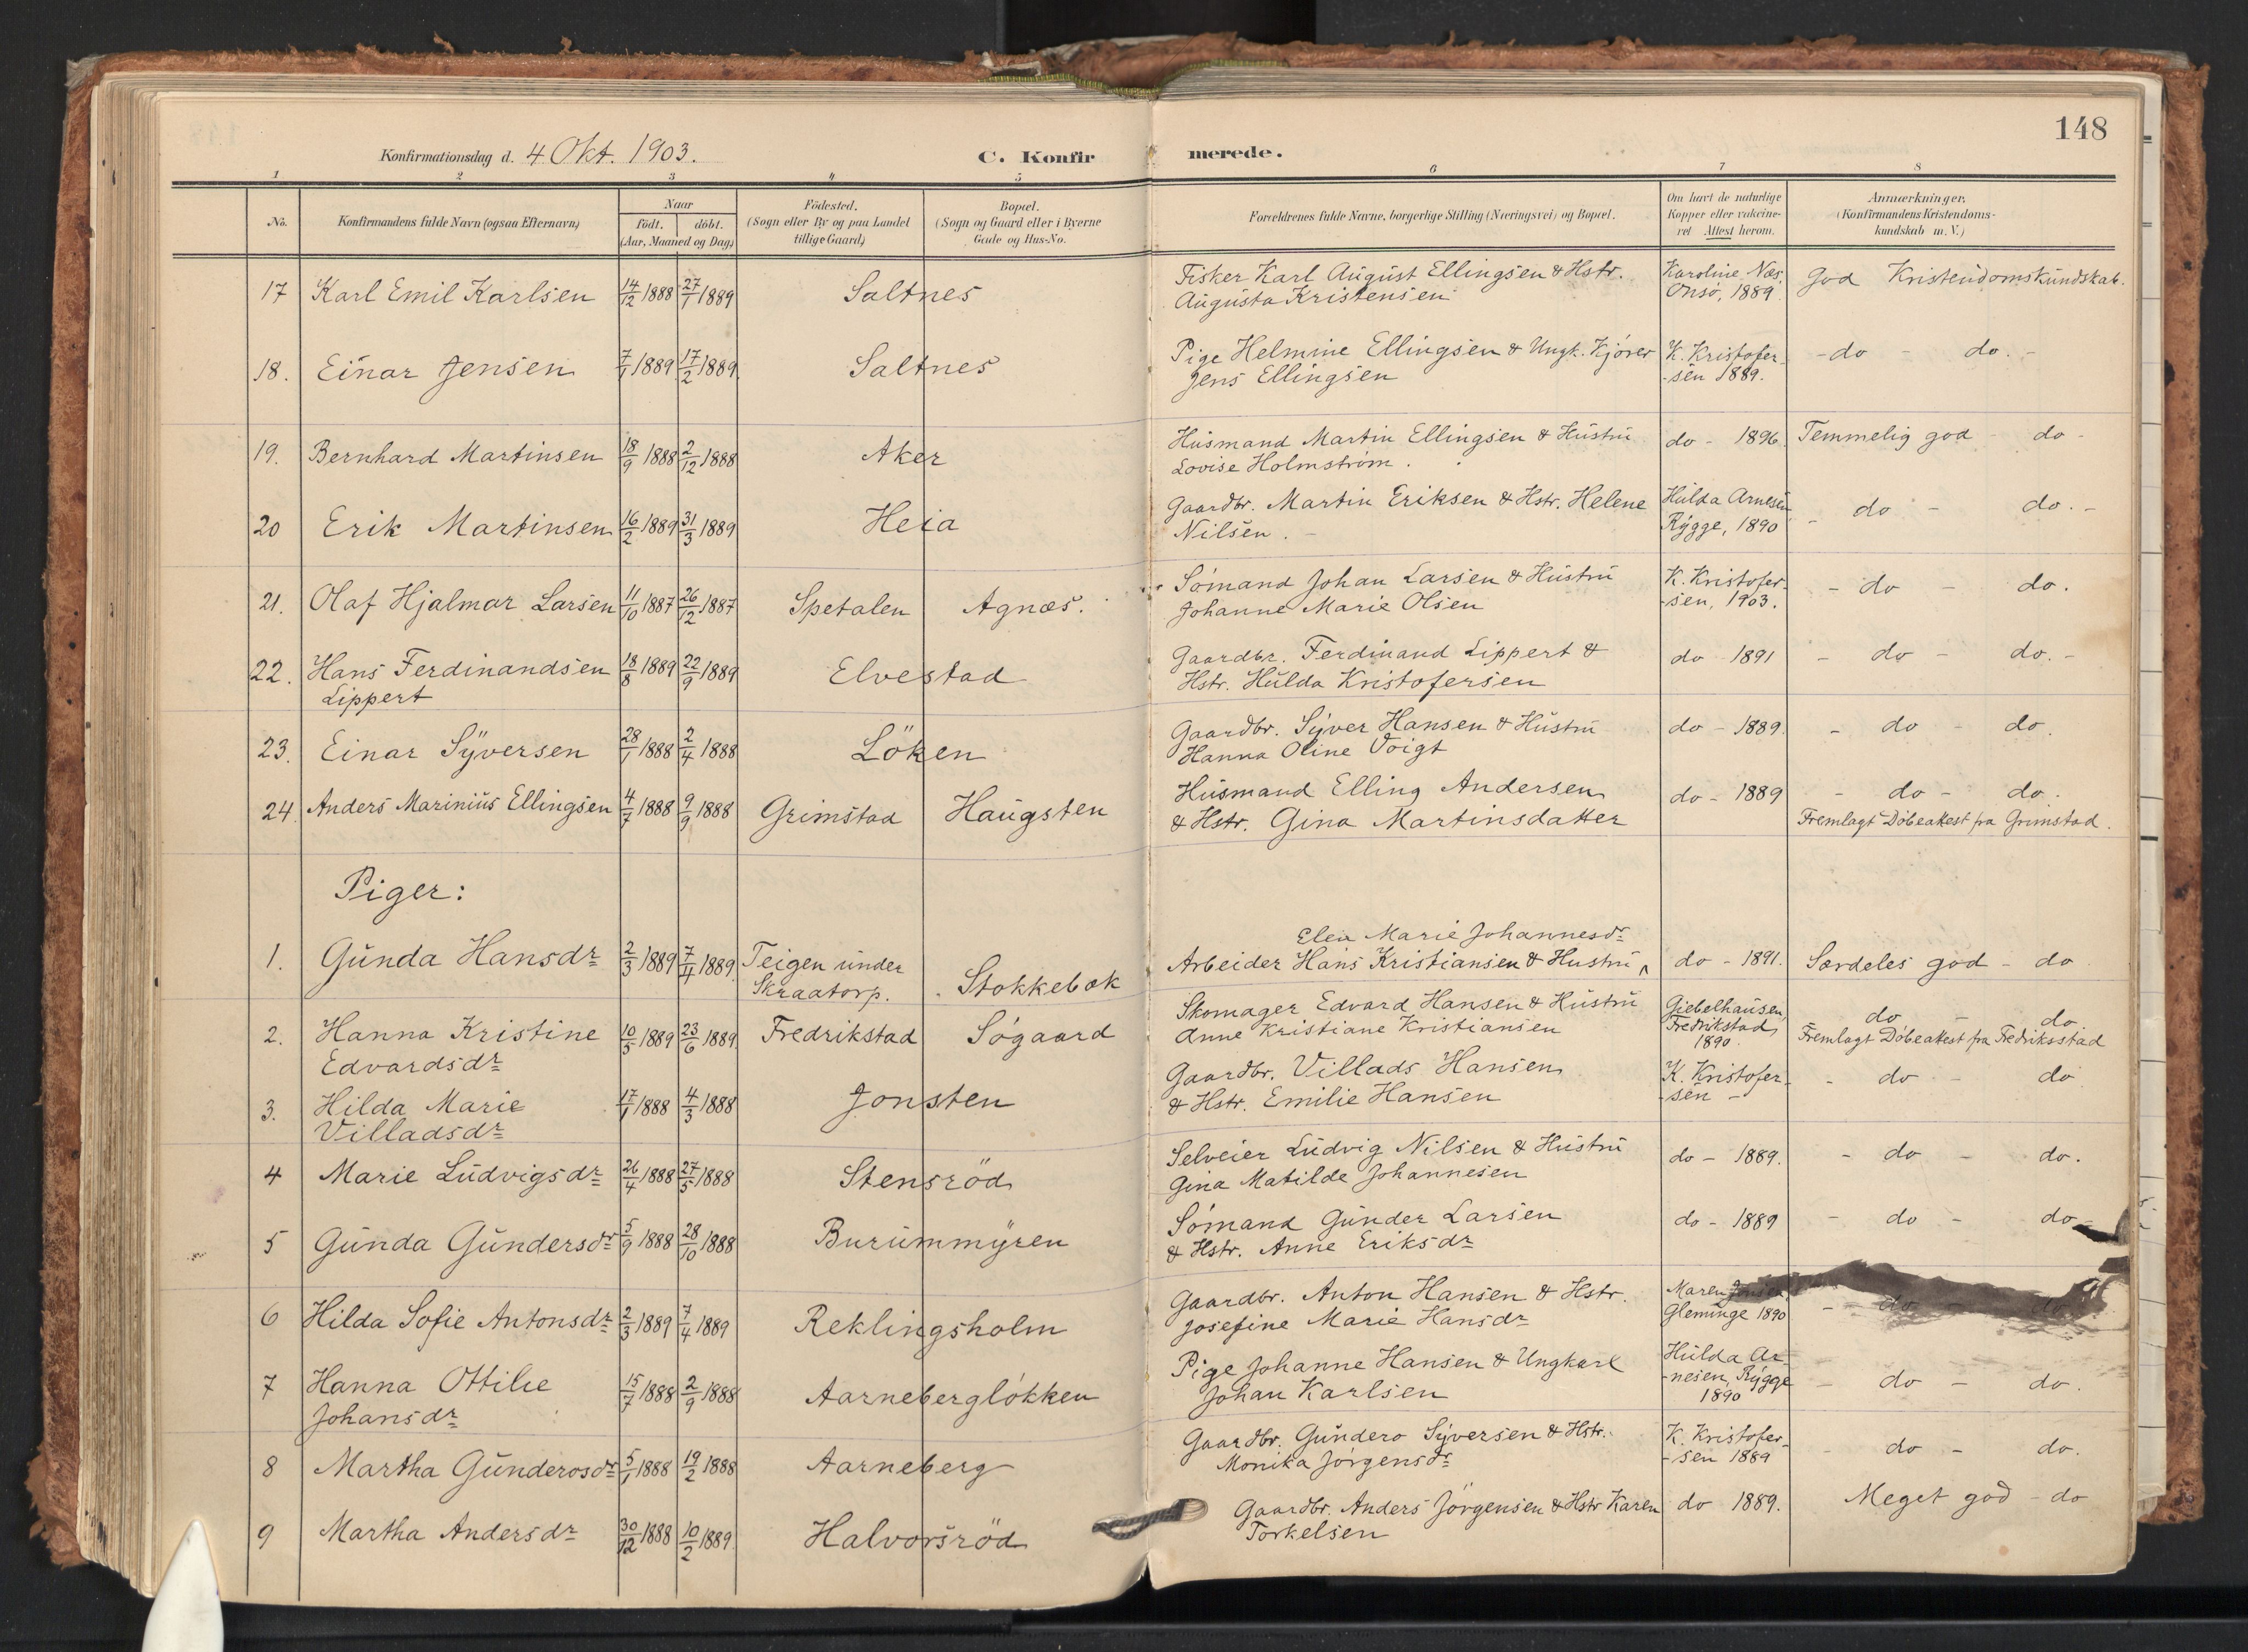 148
Konfirmationsdag d. 4 Okt. 1903. C. Konfirmerede.
1 2 3 4 5 6 7 8
No. Konfirmandens fulde Navn (ogsaa Efternavn) Naar født. døbt. (Aar, Maaned og Dag) Fødested. (Sogn eller By og paa Landet tillige Gaard) Bopæl. (Sogn og Gaard eller i Byerne Gade og Hus-No. Forældrenes fulde Navne, borgerlige Stilling (Næringsvei) og Bopæl. Om havt de naturlige Kopper eller vakcineret Attest herom. Anmærkninger. (Konfirmandens Kristendomskundskab m. V.)
17 Karl Emil Karlsen 14/12 1888 27/1 1889 Saltnes Fisker Karl August Ellingsen & Hstr. Karoline Næs. God Kristendomskundskab.
Augusta Kristensen Onsø, 1889.
18. Einar Jensen 7/1 1889 17/2 1889 Saltnes Pige Helmine Ellingsen & Ungk. Kjører K. Kristofer- - do - do. -
Jens Ellingsen -sen 1889.
19. Bernhard Martinsen 18/9 1888 2/12 1888 Aker Husmand Martin Ellingsen & Hustru do - 1896. Temmelig god - do -
Lovise Holmstrøm.
20 Erik Martinsen 16/2 1889 31/3 1889 Heia Gaardbr. Martin Eriksen & Hstr. Helene Hulda Arnesen - do - do. -
Nilsen. - Rygge, 1890
21. Olaf Hjalmar Larsen 11/10 1887 26/12 1887 Spetalen Agnæs. Sømand Johan Larsen & Hustru K. Kristofer- - do - do.
Johanne Marie Olsen -sen, 1903.
22. Hans Ferdinandsen 18/8 1889 22/9 1889 Elvestad Gaardbr. Ferdinand Lippert & do 1891 - do - do. -
Lippert Hstr. Hulda Kristofersen
23. Einar Syversen 28/1 1888 2/4 1888 Löken Gaardbr. Syver Hansen & Hustru do - 1889. - do - do.
Hanna Oline Voigt
24. Anders Marinius Ellingsen 4/7 1888 9/9 1888 Grimstad Haugsten Husmand Elling Andersen do - 1889 - do - do.
& Hstr. Gina Martinsdatter Fremlagt Døbeattest fra Grimstad.
Piger:
Elen Marie Johannesdr
1. Gunda Hansdr 2/3 1889 7/4 1889 Teigen under Stokkebæk Arbeider Hans Kristiansen & Hustru do - 1891. Særdeles god - do
Skraatorp.
2. Hanna Kristine 10/5 1889 23/6 1889. Fredrikstad Søgaard Skomager Edvard Hansen & Hustru Giebelhausen, do - do
Edvardsdr Anne Kristiane Kristiansen Fredrikstad, 1890. Fremlagt Døbeattest fra Fredriksstad
3. Hilda Marie 17/1 1888 4/3 1888 Jonsten Gaardbr. Villads Hansen K. Kristofer- - do - do
Villadsdr & Hstr. Emilie Hansen -sen -
4 Marie Ludvigsdr 26/4 1888 27/5 1888 Stensröd Selveier Ludvig Nilsen & Hustru do - 1889. - do - do.
Gina Matilde Johannesen
5 Gunda Gundersdr 5/9 1888 28/10 1888 Burummyren Sømand Gunder Larsen do - 1889 - do - do -
& Hstr. Anne Eriksdr
6 Hilda Sofie Antonsdr 2/3 1889 7/4 1889 Reklingsholm Gaardbr. Anton Hansen & Hstr. Maren - do - do
Josefine Marie Hansdr Gleminge 1890
7 Hanna Ottilie 15/7 1888 2/9 1888 Aarnebergløkken Pige Johanne Hansen & Ungkarl Hulda Ar- - do - do.
Johansdr Johan Karlsen -nesen, Rygge 1890
8 Martha Gunderosdr 5/1 1888 19/2 1888 Aarneberg Gaardbr. Gundero Syversen & Hstr. K. Kristofer- - do - do.
Monika Jørgensdr -sen 1889
9 Martha Andersdr 30/12 1888 10/2 1889. Halvorsröd Gaardbr. Anders Jörgensen & Hstr Karen do 1889. Meget god - do
Torkelsen